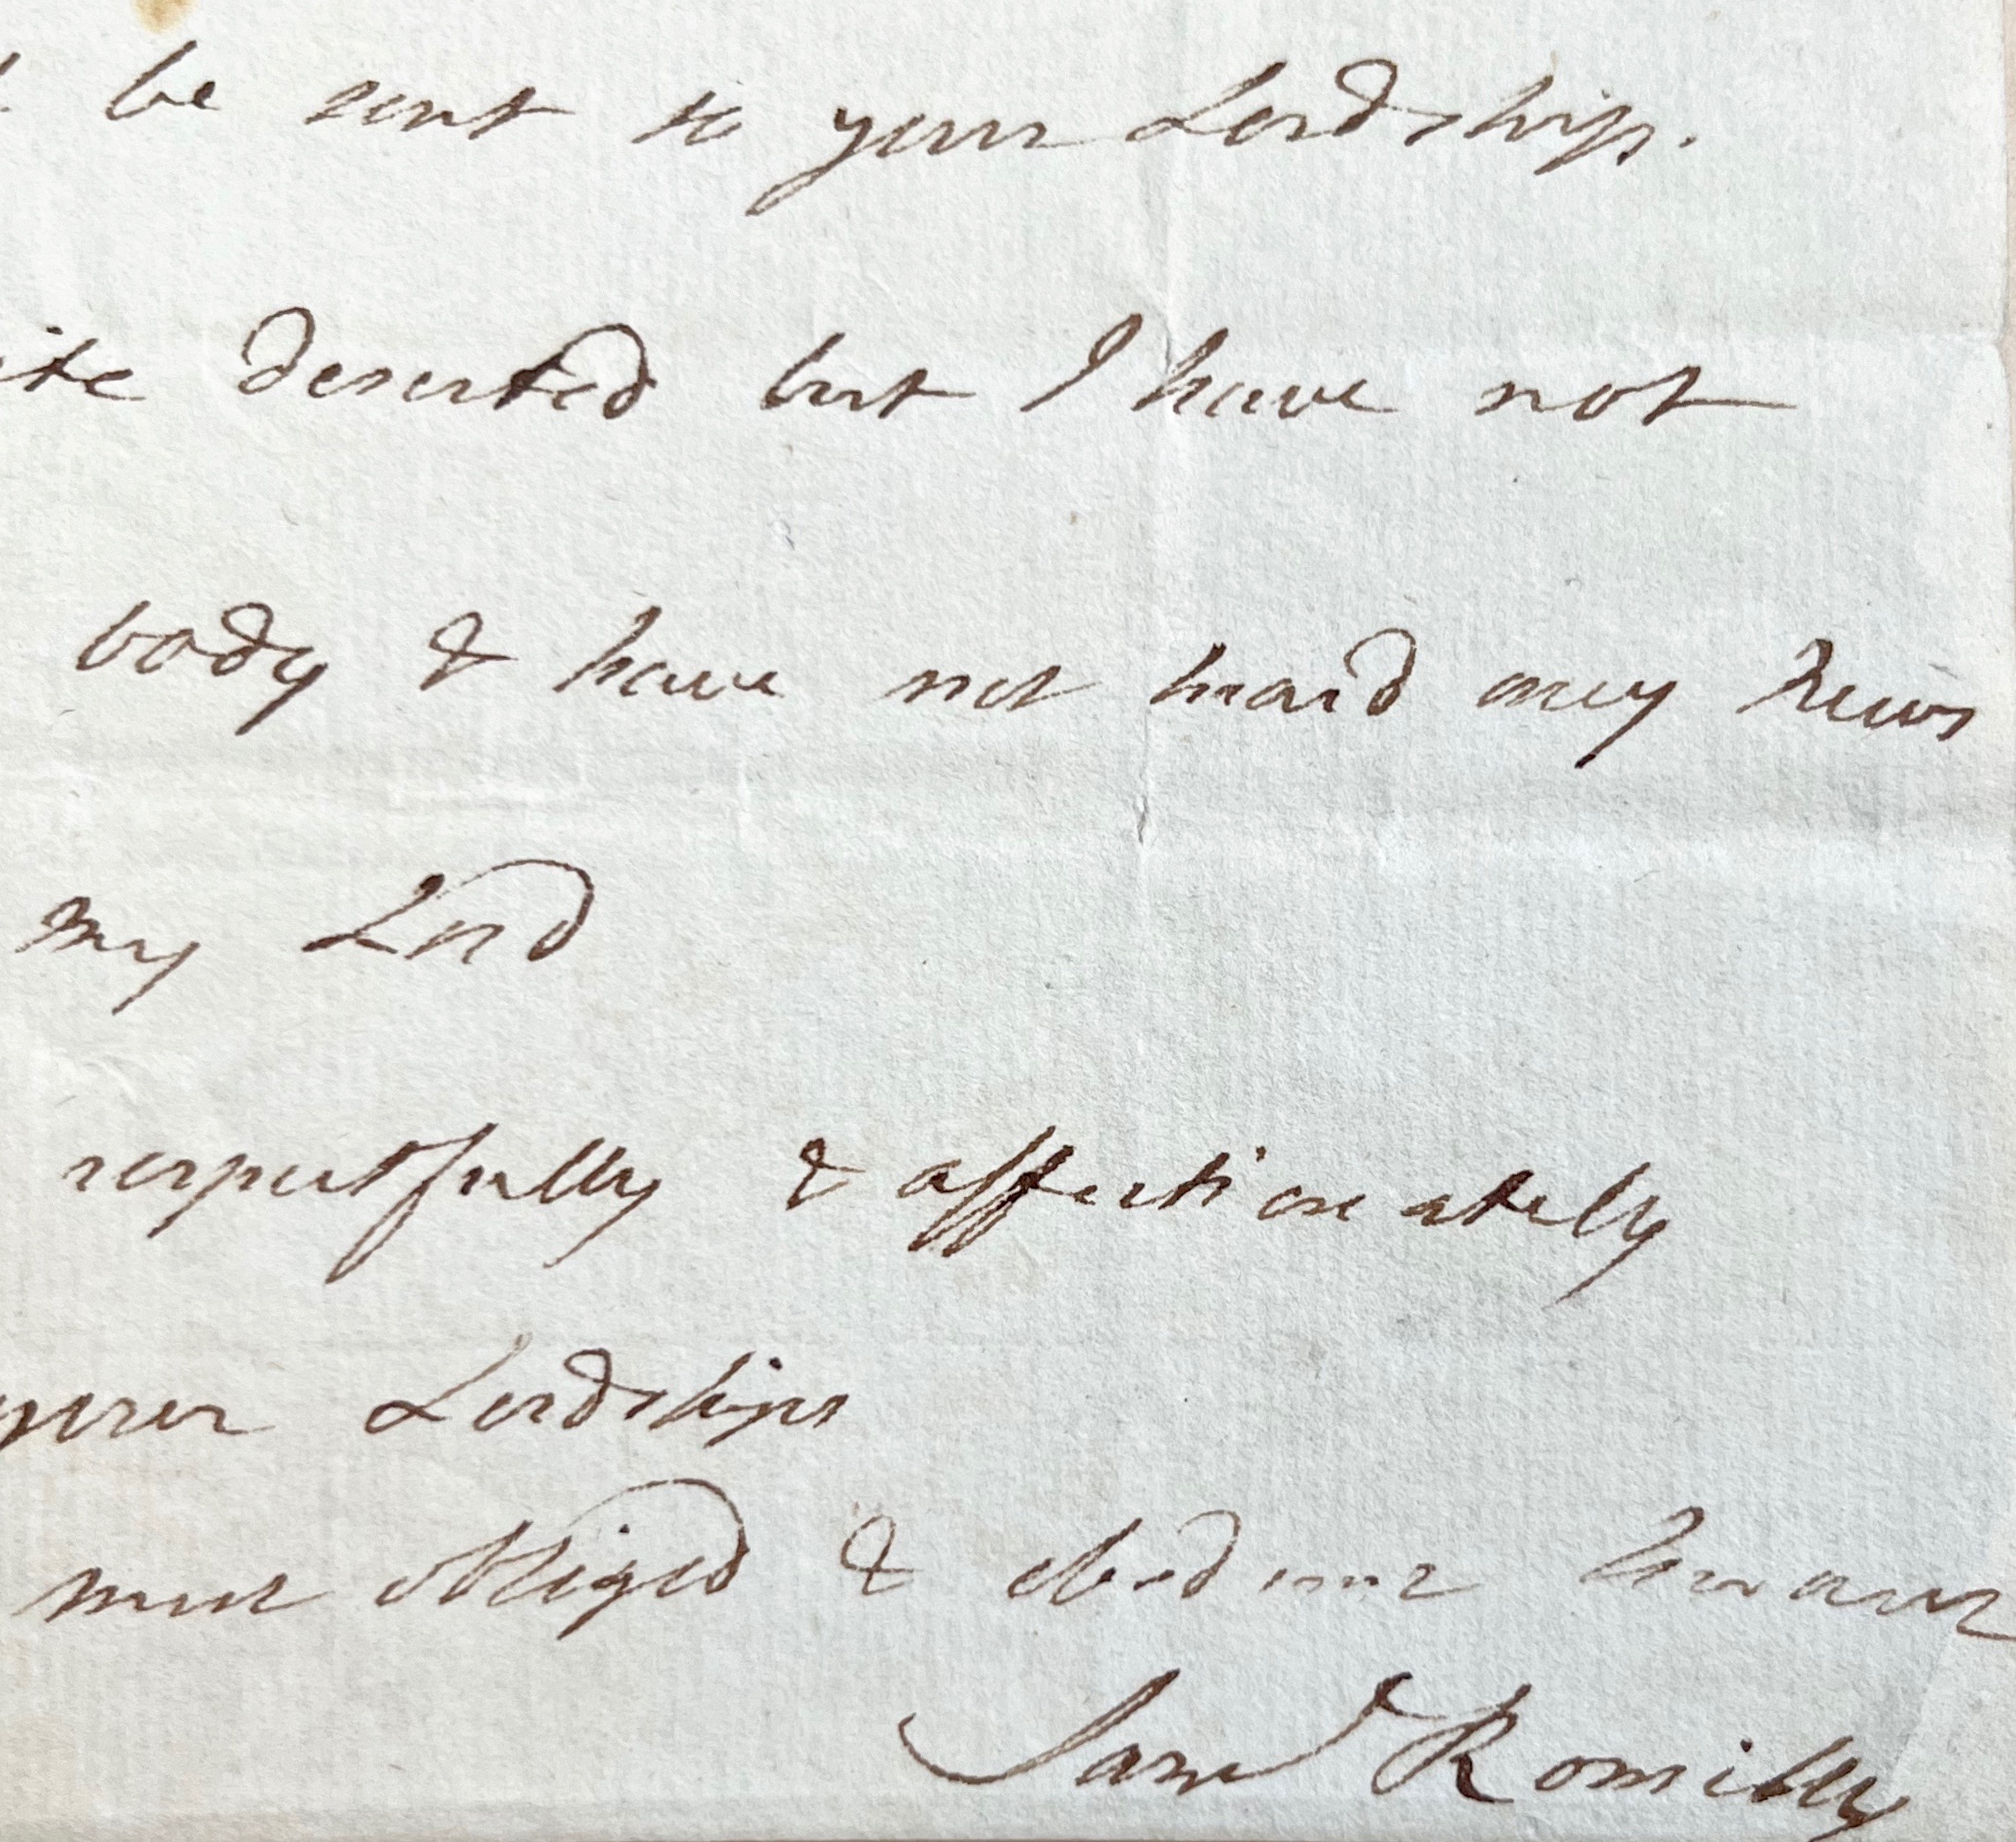 be sent to your Lordship.
ite deserted but I have not
body & have not heard any News
my Lord
respectfully & affectionately
your Lordships
most obliged & obedient Servant
Saml Romilly